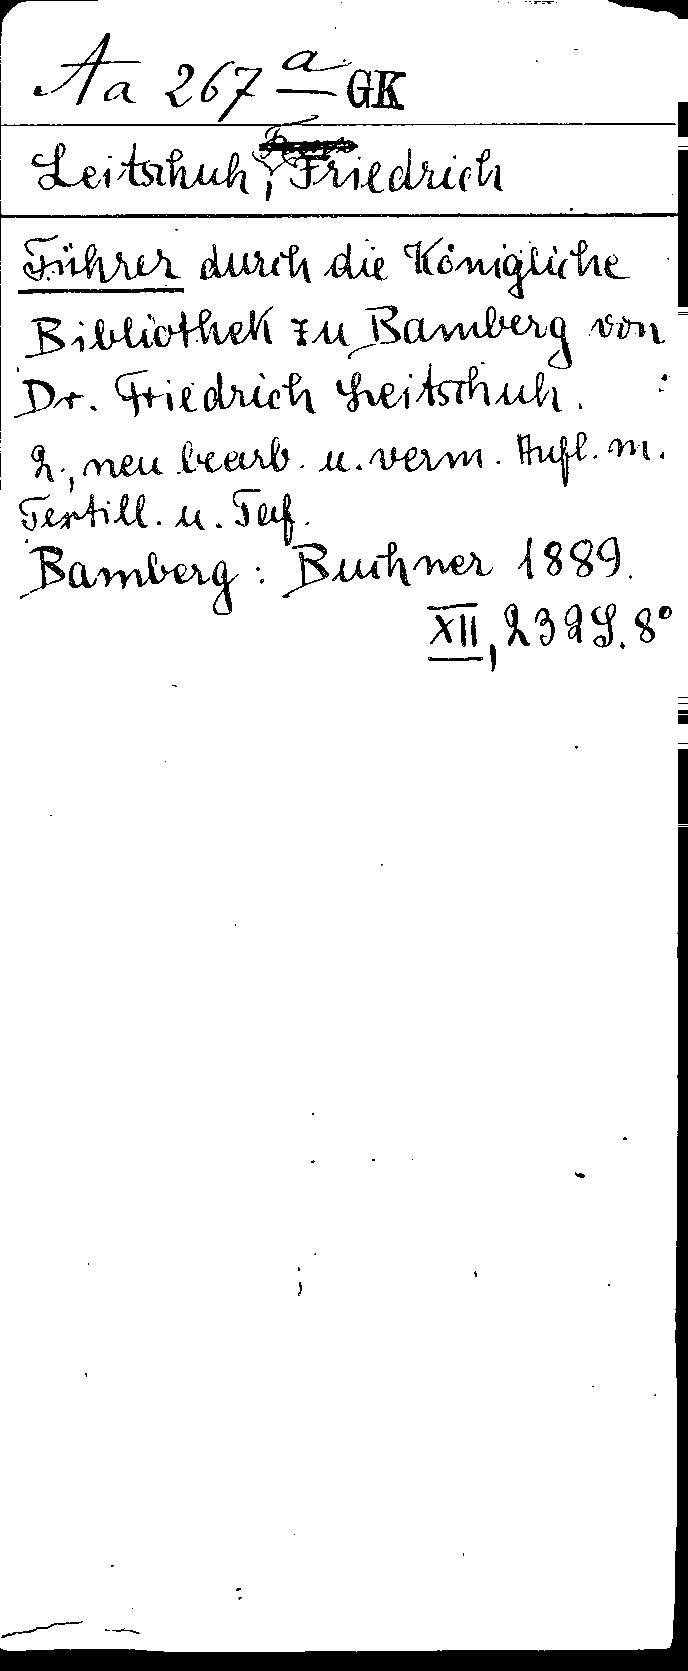 Aa 267 a GK
Leitschuh, Friedrich
Führer durch die Königliche
Bibliothek zu Bamberg von
Dr. Friedrich Leitschuh.
2., neu bearb. u. verm. Aufl. m.
Textill. u. Taf.
Bamberg: Buchner 1889.
XII, 232 S. 8°